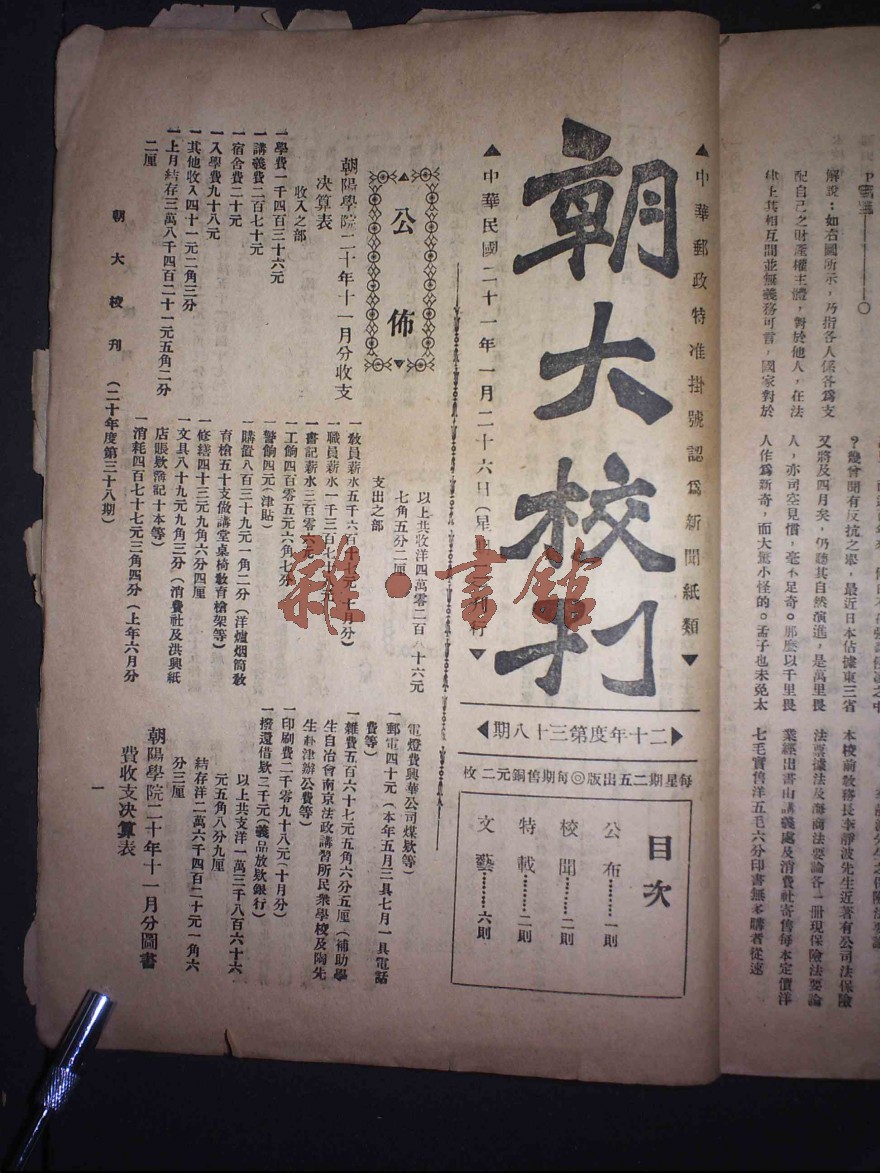 朝大校刊
▲中華郵政特准掛號認爲新聞紙類▼
▲中華民國二十一年一月二十六日(星期
刊行▼
◀二十年度第三十八期▶
每星期二五出版◎每期售銅元二枚
目次
公布………一則
校聞………二則
特載………二則
文藝………六則
▲公佈▼
朝陽學院二十年十一月分收支
決算表
收入之部
一學費一千四百三十六元
一講義費二百七十元
一宿舍費二十元
一入學費九十八元
一其他收入四十一元二角三分
一上月結存三萬八千四百二十一元五角二分
二厘
以上共收洋四萬零二百八十六元
七角五分二厘
支出之部
一教員薪水五千六百
十月分)
一職員薪水一千三百七十
元
一書記薪水三百零六元
一工餉四百零五元六角七分
一警餉四元(津貼)
一購置八百三十九元一角二分(洋爐烟筒敎
育槍五十支做講堂桌椅敎育槍架等)
一修繕四十三元九角六分四厘
一文具八十九元九角三分(消費社及洪興紙
店賬欵簿記十本等)
一消耗四百七十七元三角四分(上年六月分
電燈費興華公司煤欵等)
一郵電四十元(本年五月三具七月一具電話
費等)
一雜費五百六十七元五角六分五厘(補助學
生自治會南京法政講習所民衆學校及陶先
生赴津辦公費等)
一印刷費二千零九十八元(十月分)
一撥還借欵二千元(義品放欵銀行)
以上共支洋一萬三千八百六十六
元五角八分九厘
結存洋二萬六千四百二十元一角六
分三厘
朝陽學院二十年十一月分圖書
費收支決算表
朝大校刊 (二十年度第三十八期)
一
雜·書館
解說:如右圖所示,乃指各人係各爲支
配自己之財產權主體,對於他人,在法
律上其相互間並無義務可言,國家對於
?幾曾聞有反抗之舉,最近日本佔據東三省
又將及四月矣,仍聽其自然演進,是萬里畏
人,亦司空見慣,毫不足奇。那麽以千里畏
人作爲新奇,而大驚小怪的。孟子也未免太
本校前敎務長李靜波先生近著有公司法保險
法票據法及海商法要論各一冊現保險法要論
業經出書由講義處及消費社寄售每本定價洋
七毛實售洋五毛六分印書無多購者從速